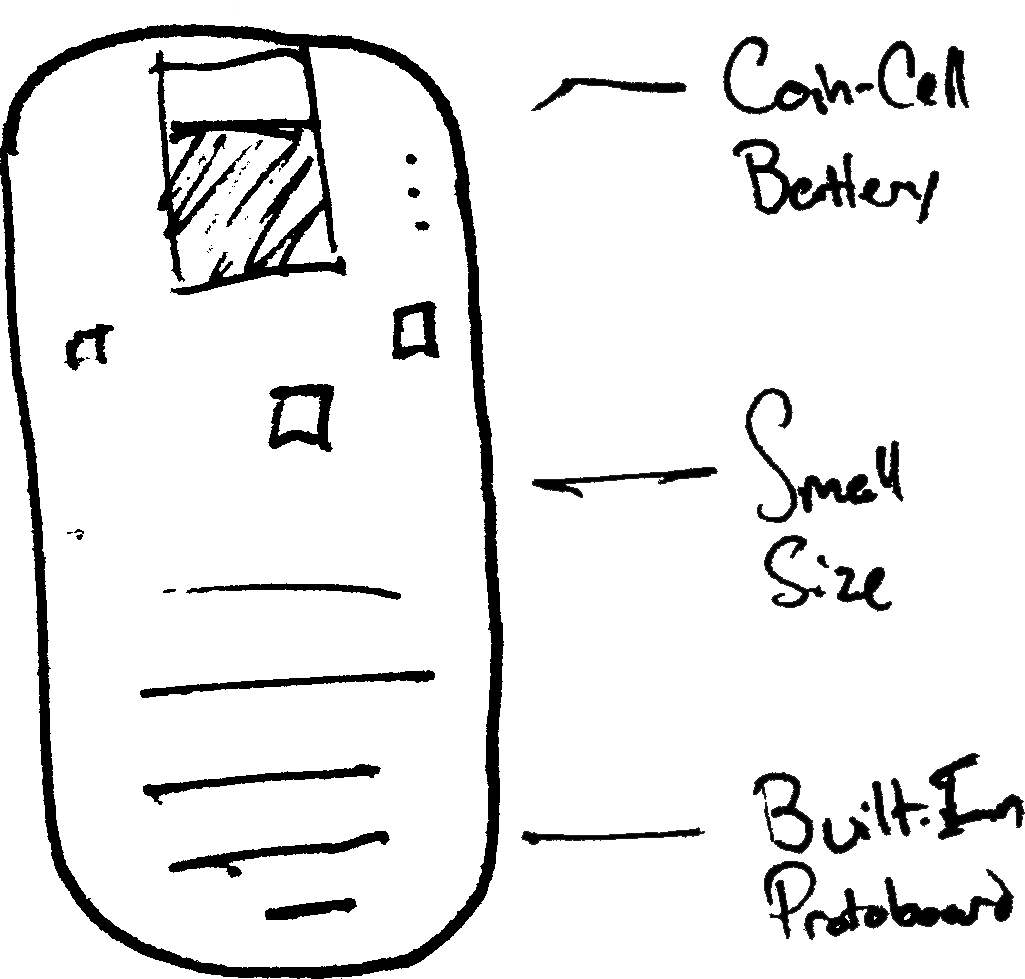 Coin-Cell
Battery
Small
Size
Built-In
Protoboard